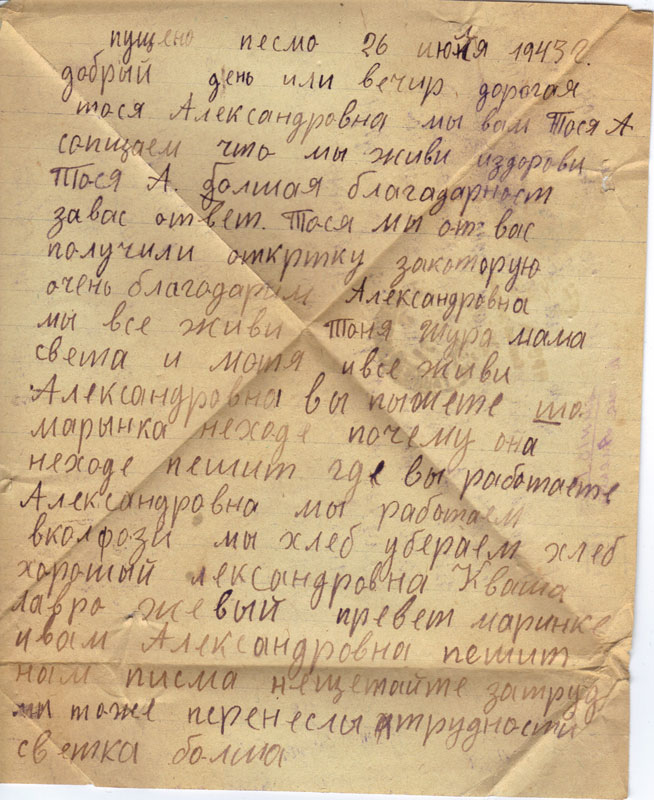 пущено песмо 26 июля 1943 г.
добрый день или вечир дорогая
тося Александровна мы вам Тося А
сопизаем что мы живи издорови
Тося А. болшая благодарност
завас ответ. Тося мы от вас
получили открытку закоторую
очень благодарим Александровна
мы все живи Тоня Шура мама
света и мотя ивсе живи
Александровна вы пышете шо
марынка неходе почему она
неходе пешит где вы работаете
Александровна мы работаем
вколфози мы хлеб убераем хлеб
хороший лександровна Кваша
лавро жевый превет маринке
ивам Александровна пешит
нам писма нещетайте затруд
мы тоже перенеслы трудности
светка болша